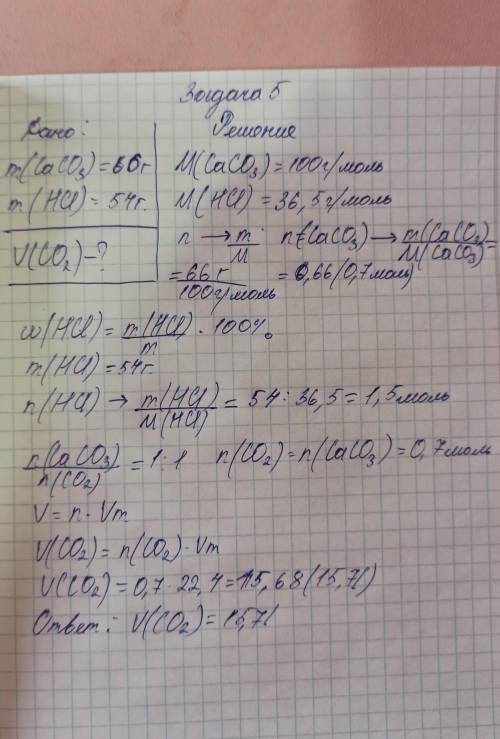 Задача 5
Дано:
Решение
m(CaCO₃) = 66 г
M(CaCO₃) = 100 г/моль
m(HCl) = 54 г.
M(HCl) = 36,5 г/моль
V(CO₂) - ?
n → m/M  n(CaCO₃) → m(CaCO₃)/M(CaCO₃) =
= 66 г/100 г/моль = 0,66 (0,7 моль)
w(HCl) = m(HCl)/m · 100%
m(HCl) = 54 г.
n(HCl) → m(HCl)/M(HCl) = 54 : 36,5 = 1,5 моль
n(CaCO₃)/n(CO₂) = 1 : 1  n(CO₂) = n(CaCO₃) = 0,7 моль
V = n · Vm
V(CO₂) = n(CO₂) · Vm
V(CO₂) = 0,7 · 22,4 = 15,68 (15,7 l)
Ответ: V(CO₂) = 15,7 l